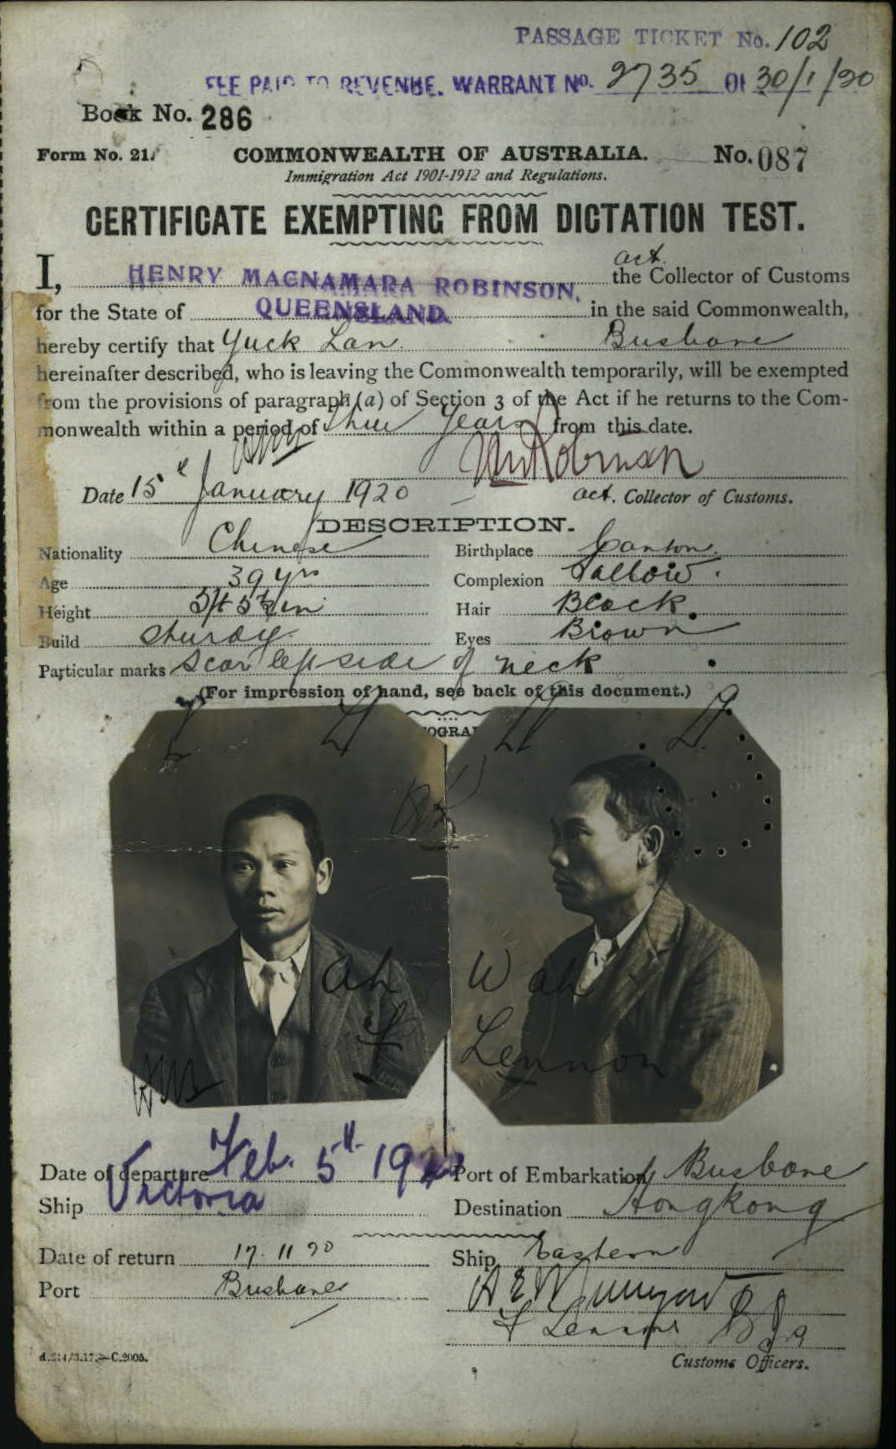 PASSAGE TICKET No. 102
FEE PAID TO REVENUE. WARRANT No. 2735 OF 30/1/20
Book No. 286
Form No. 21. COMMONWEALTH OF AUSTRALIA. No. 087
Immigration Act 1901-1912 and Regulations.
CERTIFICATE EXEMPTING FROM DICTATION TEST.
act.
I, HENRY MACNAMARA ROBINSON, the Collector of Customs
for the State of QUEENSLAND in the said Commonwealth,
hereby certify that Yuck Lan Brisbane
hereinafter described, who is leaving the Commonwealth temporarily, will be exempted
from the provisions of paragraph (a) of Section 3 of the Act if he returns to the Com-
monwealth within a period of three years from this date.
HMR
HMRobinson
Date 15th January 1920 act. Collector of Customs.
DESCRIPTION.
Nationality Chinese Birthplace Canton
Age 39 yrs Complexion Sallow
Height 5ft 5½in Hair Black
Build sturdy Eyes Brown
Particular marks Scar left side of neck
(For impression of hand, see back of this document.)
OGRA
Ah Wah
F Lennon
Date of departure Feb. 5th 192 Port of Embarkation Brisbane
Ship Victoria Destination Hongkong
Date of return 17.11.20 Ship Eastern
Port Brisbane
F Lennon
Customs Officers.
C.2005.